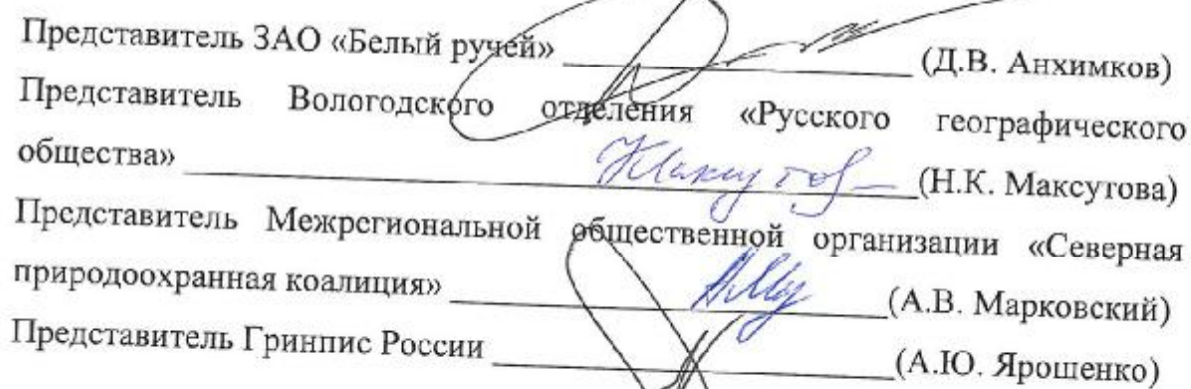 Представитель ЗАО «Белый ручей» (Д.В. Анхимков)
Представитель Вологодского отделения «Русского географического
общества» (Н.К. Максутова)
Представитель Межрегиональной общественной организации «Северная
природоохранная коалиция» (А.В. Марковский)
Представитель Гринпис России (А.Ю. Ярошенко)